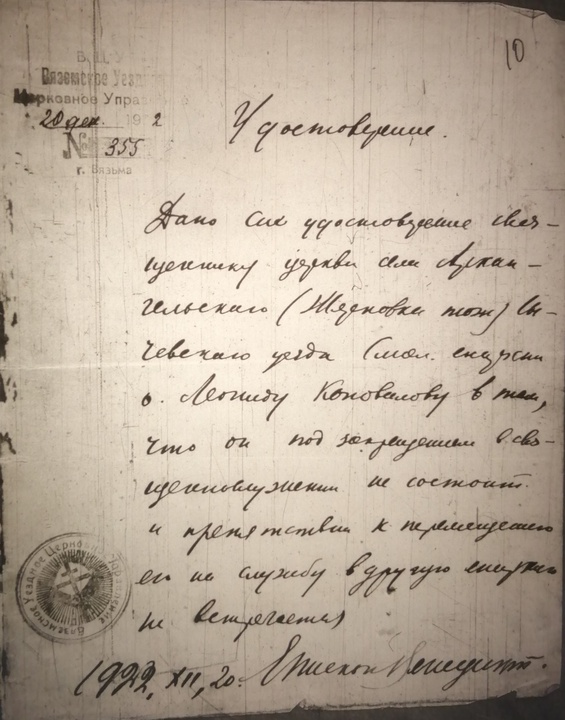 10
В. Ц. У.
Вяземское Уезд
Церковное Управ
20 дек. 192 2
№ 355
г. Вязьма
Удостоверение.
Дано сие удостоверение свя-
щеннику церкви села Архан-
гельскаго (Жерновки тож) Сы-
чевскаго уезда Смол. епархии
о. Леониду Коновалову в том,
что он под запрещением в свя-
щеннослужении не состоит
и препятствий к перемещению
его на службу в другую епархию
не встречается
Вяземское Уездное Церковное Управление
1922, XII, 20. Епископ Венедикт.